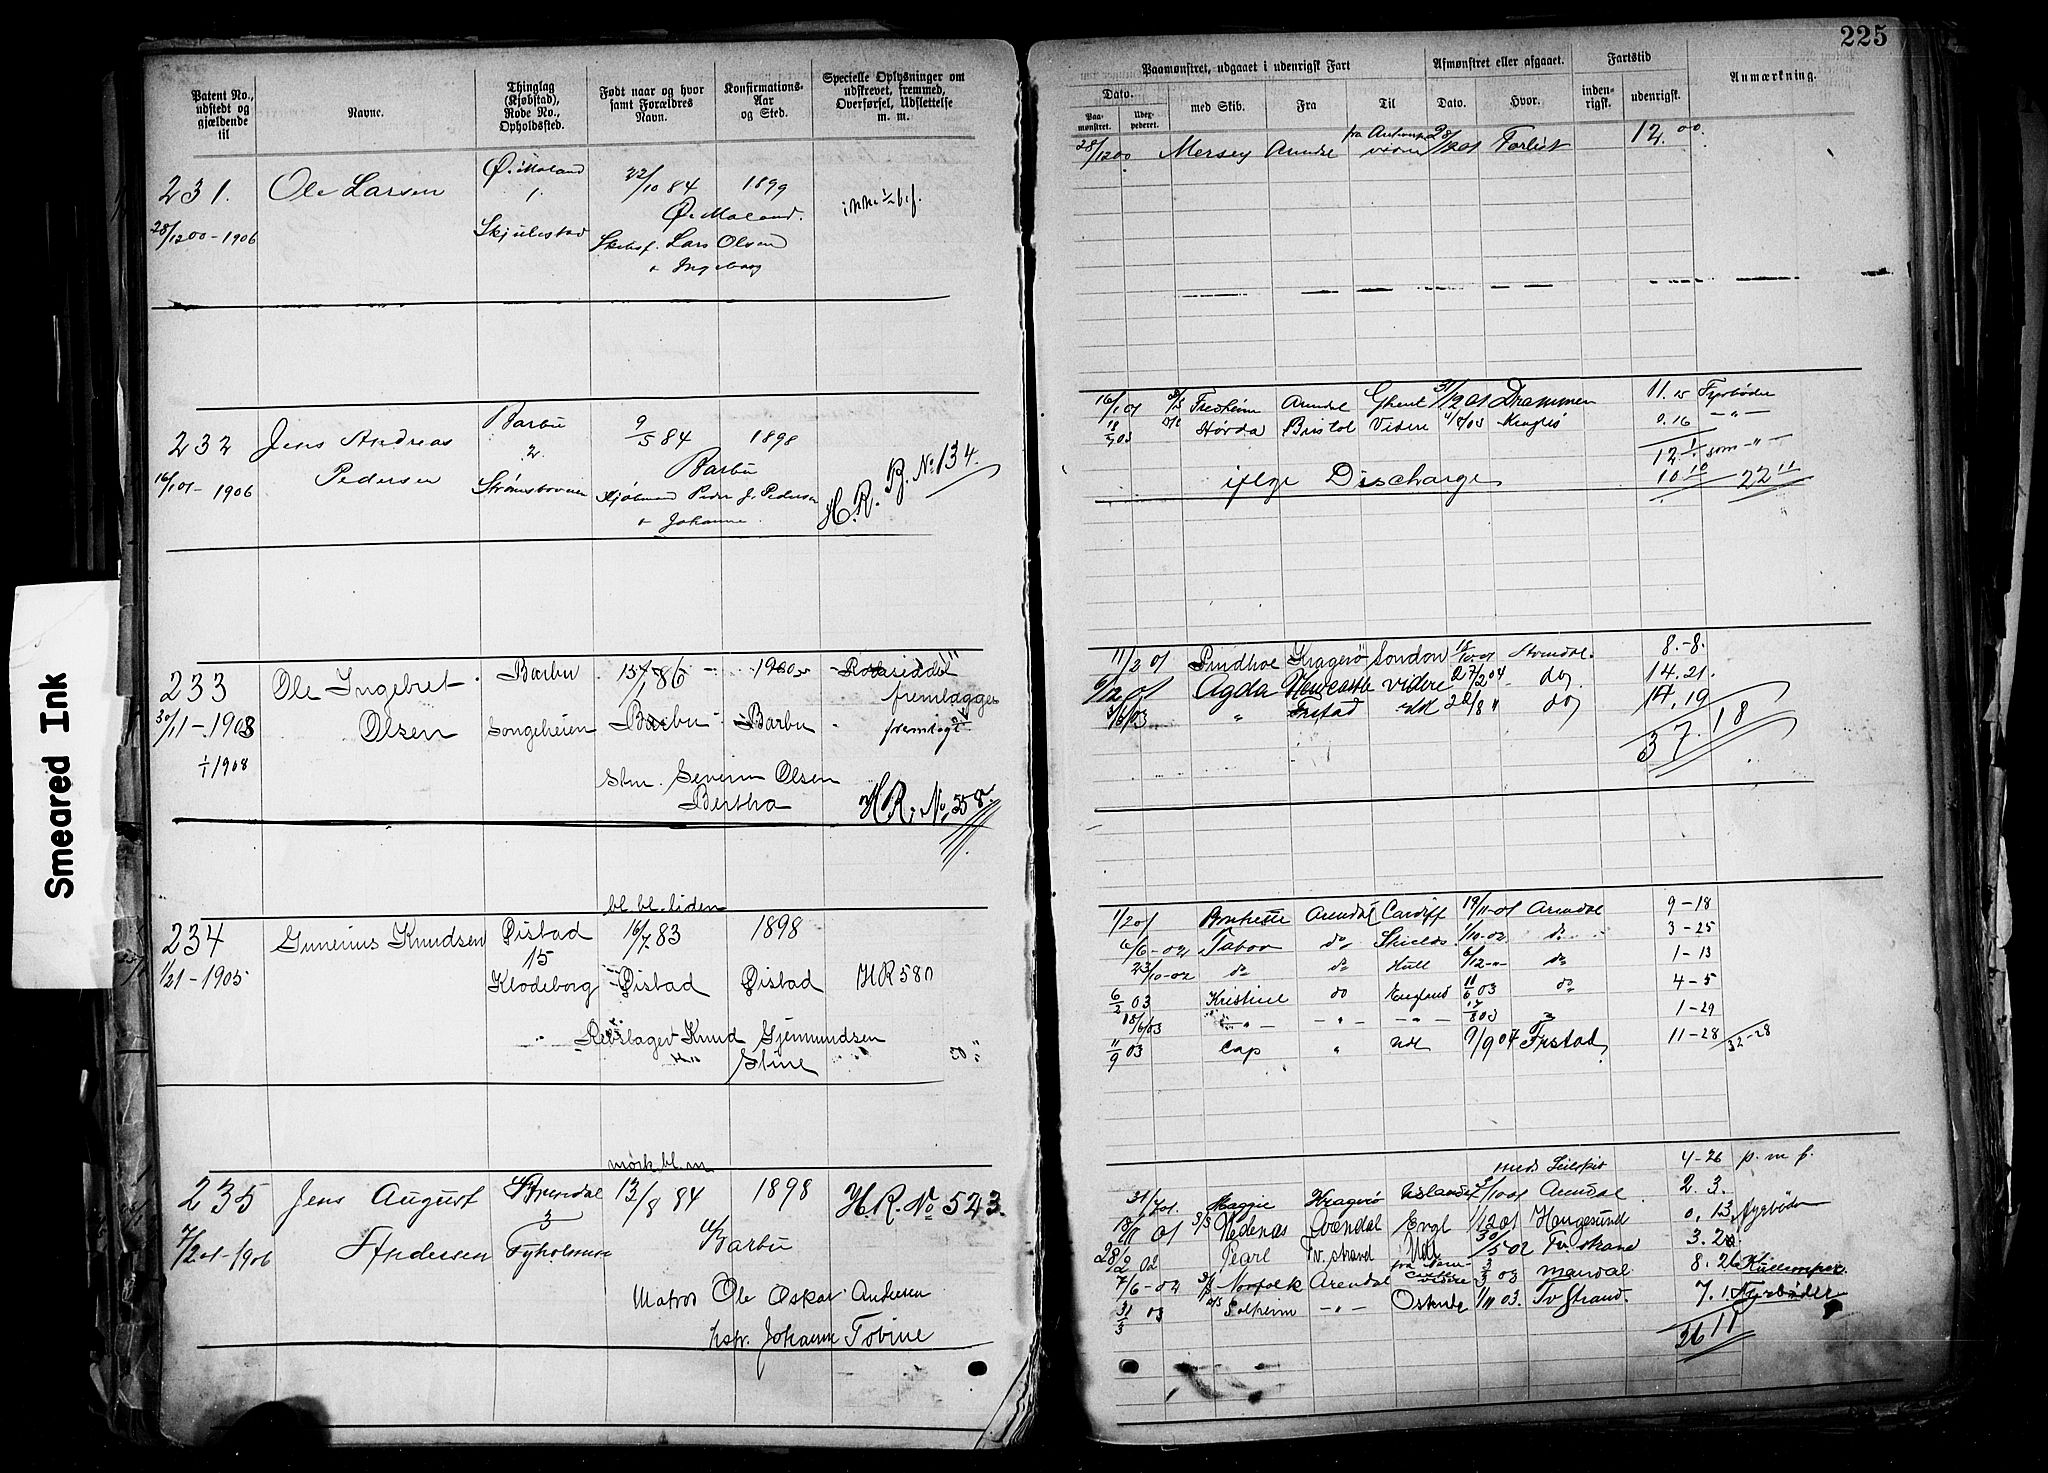 225
Patent No., udstedt og gjældende til
Navne.
Thinglag (Kjøbstad), Rode No., Opholdsted.
Født naar og hvor samt Forældres Navn.
Konfirmations-Aar og Sted.
Specielle Oplysninger om udskrevet, fremmed, Overførsel, Udslettelse m. m.
Paamønstret, udgaaet i udenrigsk Fart
Afmønstret eller afgaaet.
Fartstid
Anmærkning.
Dato.
Paamønstret.
Udexpederet.
med Skib.
Fra
Til
Dato.
Hvor.
indenrigsk.
udenrigsk.
231.
Ole Larsen
Ø. Moland
1.
Skjulestad
22/10 84
1899
Ø. Moland.
Lars Olsen
+ Ingeborg
28/12 00 - 1906
28/12 00 Mersey Arendl
Forlist
12.00.
232
Jens Andreas
Pedersen
16/1 01 - 1906
Barbu
2.
9/5 84
1898
Barbu
Peder J. Pedersen
+ Johanne.
H.R. B. No 134.
16/1 01 Fredheim Arendal Ghent 31/12 01 Drammen 11.15 Fyrbøder
Hørda Bristol Videre Kragrø 0.16 - " -
12 1. som - " -
10 10 22 11
ifølge Discharge
233
Ole Ingebret
Olsen
30/11 - 1903
1/1 1908
Barbu
Songeheien
15/1 86
1900
Barbu - Barbu
fremlægges
fremlagt
Severin Olsen
Bertha
H.R. No 358.
11/2 01 Kragerø London Arendal. 8.-8.
6/12 01 Agda Newcastle videre 27/2 04 do 14.21.
3/6 03 " do 14.19
37.18
234
Gunerius Knudsen
1/2 1 - 1905
bl. bl. liden
Øistad
15
Klodeborg
16/7 83
1898
Øistad Øistad
HR 580
Rebslager Knud Gjermundsen
Stine
1/2 01 Arendal Cardiff 19/11-01 Arendal 9-18
6/6-02 Tabor do Shields 1/10-02 do 3-25
23/10-02 do do Hull 6/12-" do 1-13
6/2 03 Kristine do England 11/6 03 do 4-5
15/6 03 - " - - " - - " - 17/8 03 1-29
11/9 03 Cap " Udl 9/9 04 11-28 32-28
235
Jens August
Andersen
7/2 01 - 1906
mørk. bl. m
Arendal
3
Tyholmen
13/8 84
1898
Barbu
H.R. No 523.
Matros Ole Oskar Andersen
Johanne Tobine
med Seilskib 4-26 p. m. f.
31/7 01. Maggie Kragerø Arendal. 2. 3.
18/11 01 Vedenæs Arendal Engl 1/12 01 Haugesund 0,13, fyrbøder
28/2 02 Pearl Tv.strand Udl 30/5 02 Tv strand 3.20
7/6-02 Norfolk Arendal 3/3 03 Mandal 8.26
31/3 03 Solheim - " - Ostende 1/11 03. Tv Strand. 7.1. Fyrbøder
26 11
Smeared Ink